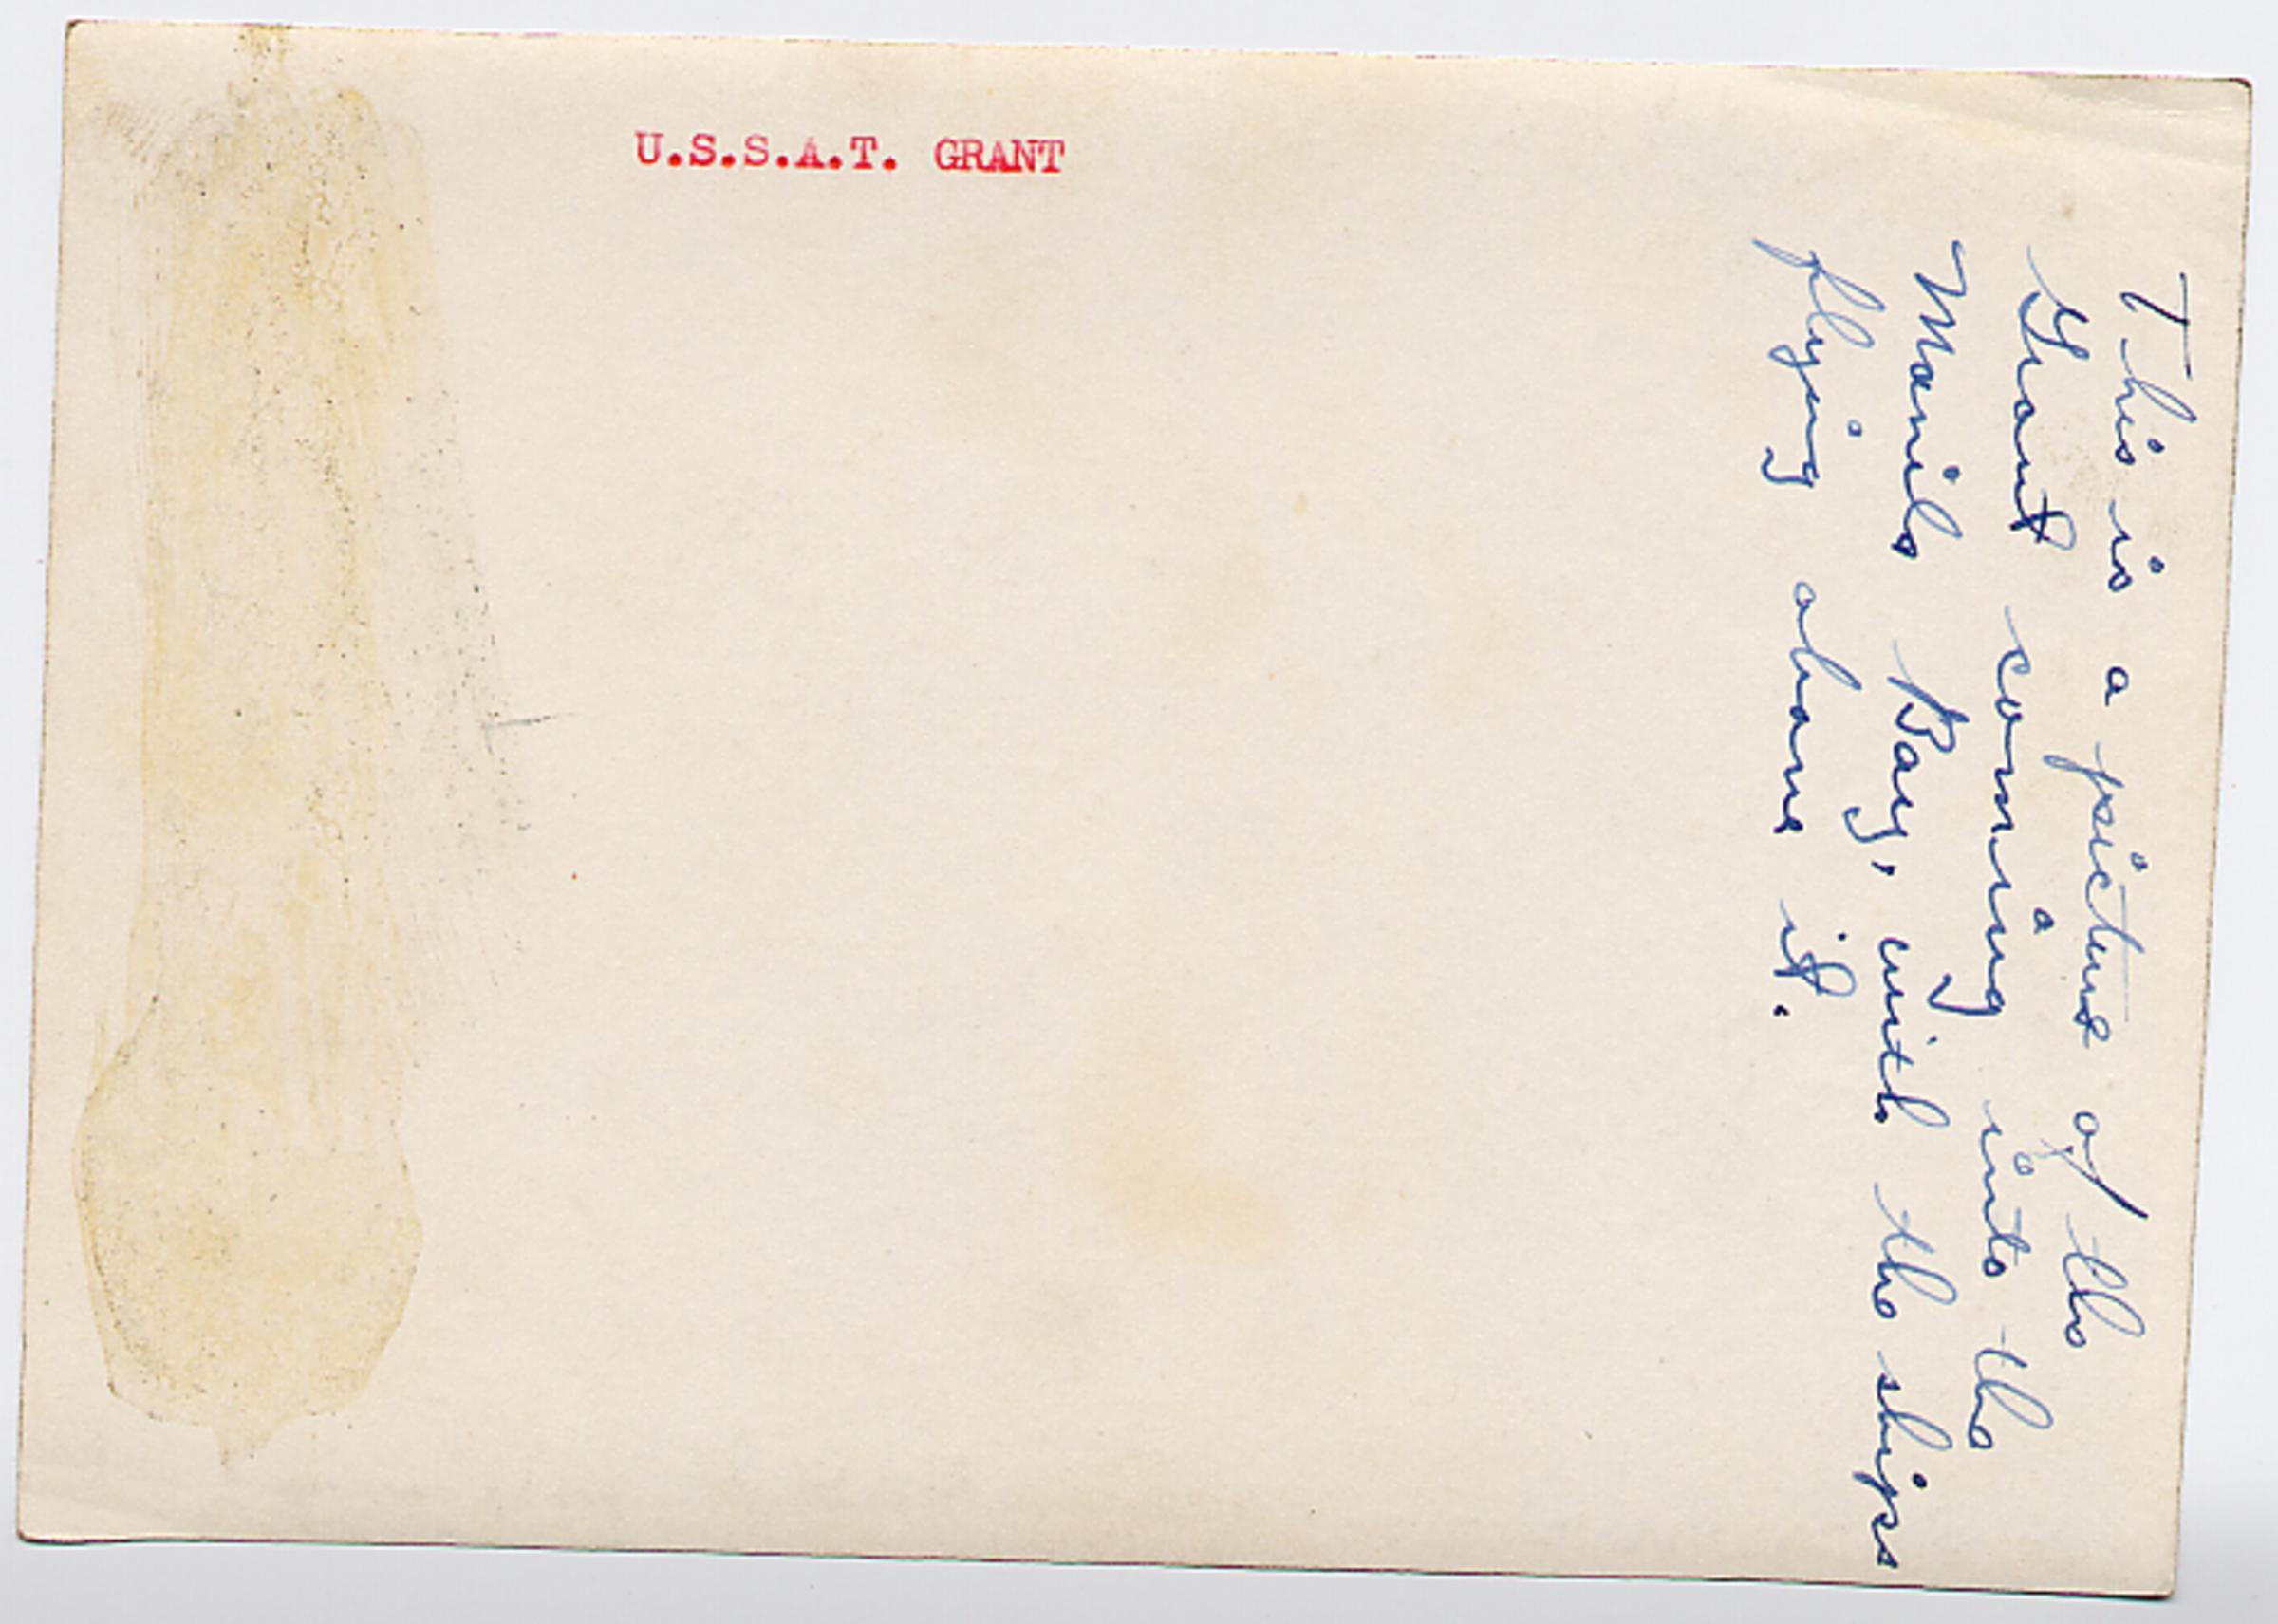 U.S.S.A.T. GRANT
This is a picture of the
Grant coming into the
Manila Bay, with the ships
flying above it.